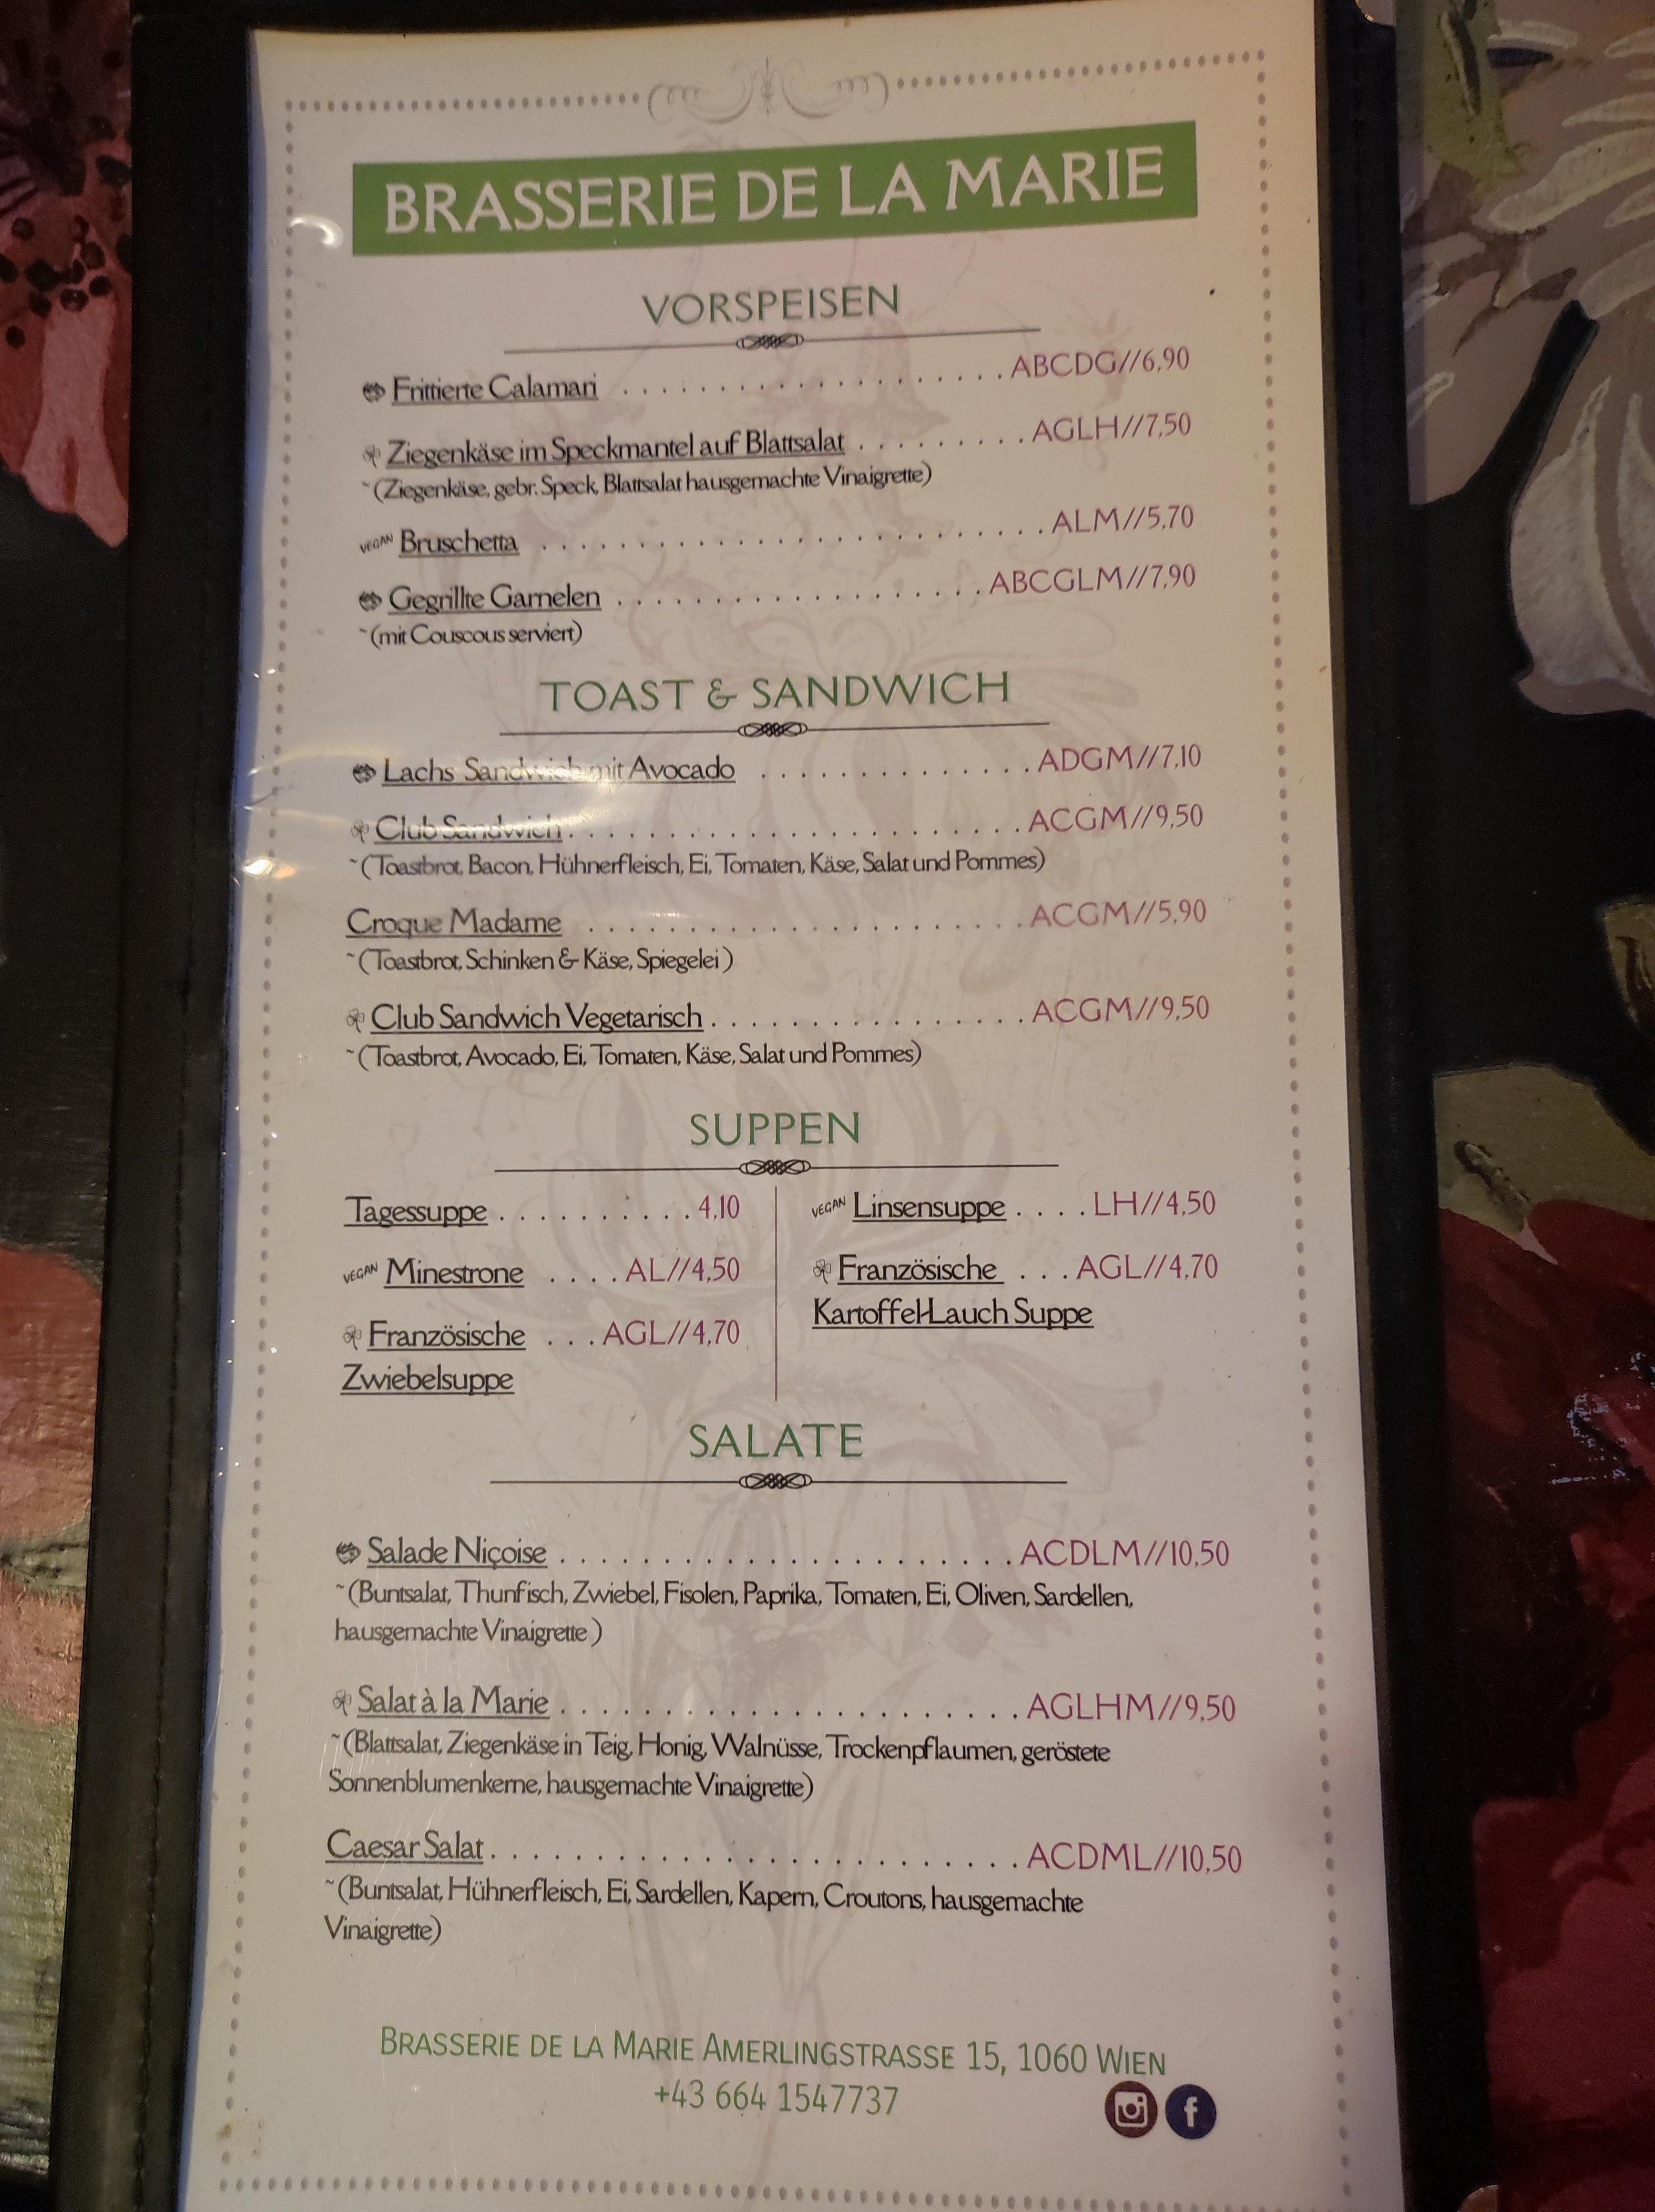 BRASSERIE DE LA MARIE
VORSPEISEN
Frittierte Calamari . . . . . . . . . . . . . . . . . . . ABCDG//6,90
Ziegenkäse im Speckmantel auf Blattsalat . . . . . . . . . AGLH//7,50
~(Ziegenkäse, gebr. Speck, Blattsalat hausgemachte Vinaigrette)
VEGAN Bruschetta . . . . . . . . . . . . . . . . . . . . . . . . ALM//5,70
Gegrillte Garnelen . . . . . . . . . . . . . . . . . . . ABCGLM//7,90
~(mit Couscous serviert)
TOAST & SANDWICH
Lachs Sandwich mit Avocado . . . . . . . . . . . . . . ADGM//7,10
Club Sandwich . . . . . . . . . . . . . . . . . . . . . . ACGM//9,50
~(Toastbrot, Bacon, Hühnerfleisch, Ei, Tomaten, Käse, Salat und Pommes)
Croque Madame . . . . . . . . . . . . . . . . . . . . . ACGM//5,90
~(Toastbrot, Schinken & Käse, Spiegelei )
Club Sandwich Vegetarisch . . . . . . . . . . . . . . . ACGM//9,50
~(Toastbrot, Avocado, Ei, Tomaten, Käse, Salat und Pommes)
SUPPEN
Tagessuppe . . . . . . . . . . 4,10
VEGAN Minestrone . . . . AL//4,50
Französische . . . AGL//4,70
Zwiebelsuppe
VEGAN Linsensuppe . . . . LH//4,50
Französische . . . AGL//4,70
Kartoffel-Lauch Suppe
SALATE
Salade Niçoise . . . . . . . . . . . . . . . . . . . . . . ACDLM//10,50
~(Buntsalat, Thunfisch, Zwiebel, Fisolen, Paprika, Tomaten, Ei, Oliven, Sardellen,
hausgemachte Vinaigrette )
Salat à la Marie . . . . . . . . . . . . . . . . . . . . . . AGLHM//9,50
~(Blattsalat, Ziegenkäse in Teig, Honig, Walnüsse, Trockenpflaumen, geröstete
Sonnenblumenkerne, hausgemachte Vinaigrette)
Caesar Salat . . . . . . . . . . . . . . . . . . . . . . . . ACDML//10,50
~(Buntsalat, Hühnerfleisch, Ei, Sardellen, Kapern, Croutons, hausgemachte
Vinaigrette)
BRASSERIE DE LA MARIE AMERLINGSTRASSE 15, 1060 WIEN
+43 664 1547737